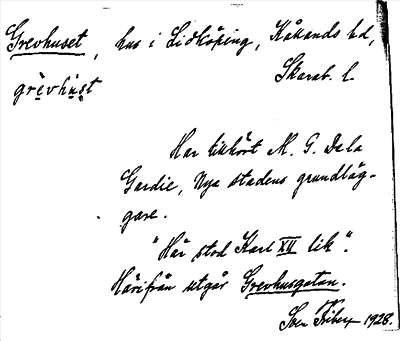 Grevhuset, hus i Lidköping, Kållands hd,
Skarab. l.
grèvhùsት
Har tillhört M. G. De la
Gardie, Nya stadens grundläg-
gare.
"Här stod Karl XII lik".
Härifrån utgår Grevhusgatan.
Sven 1928.